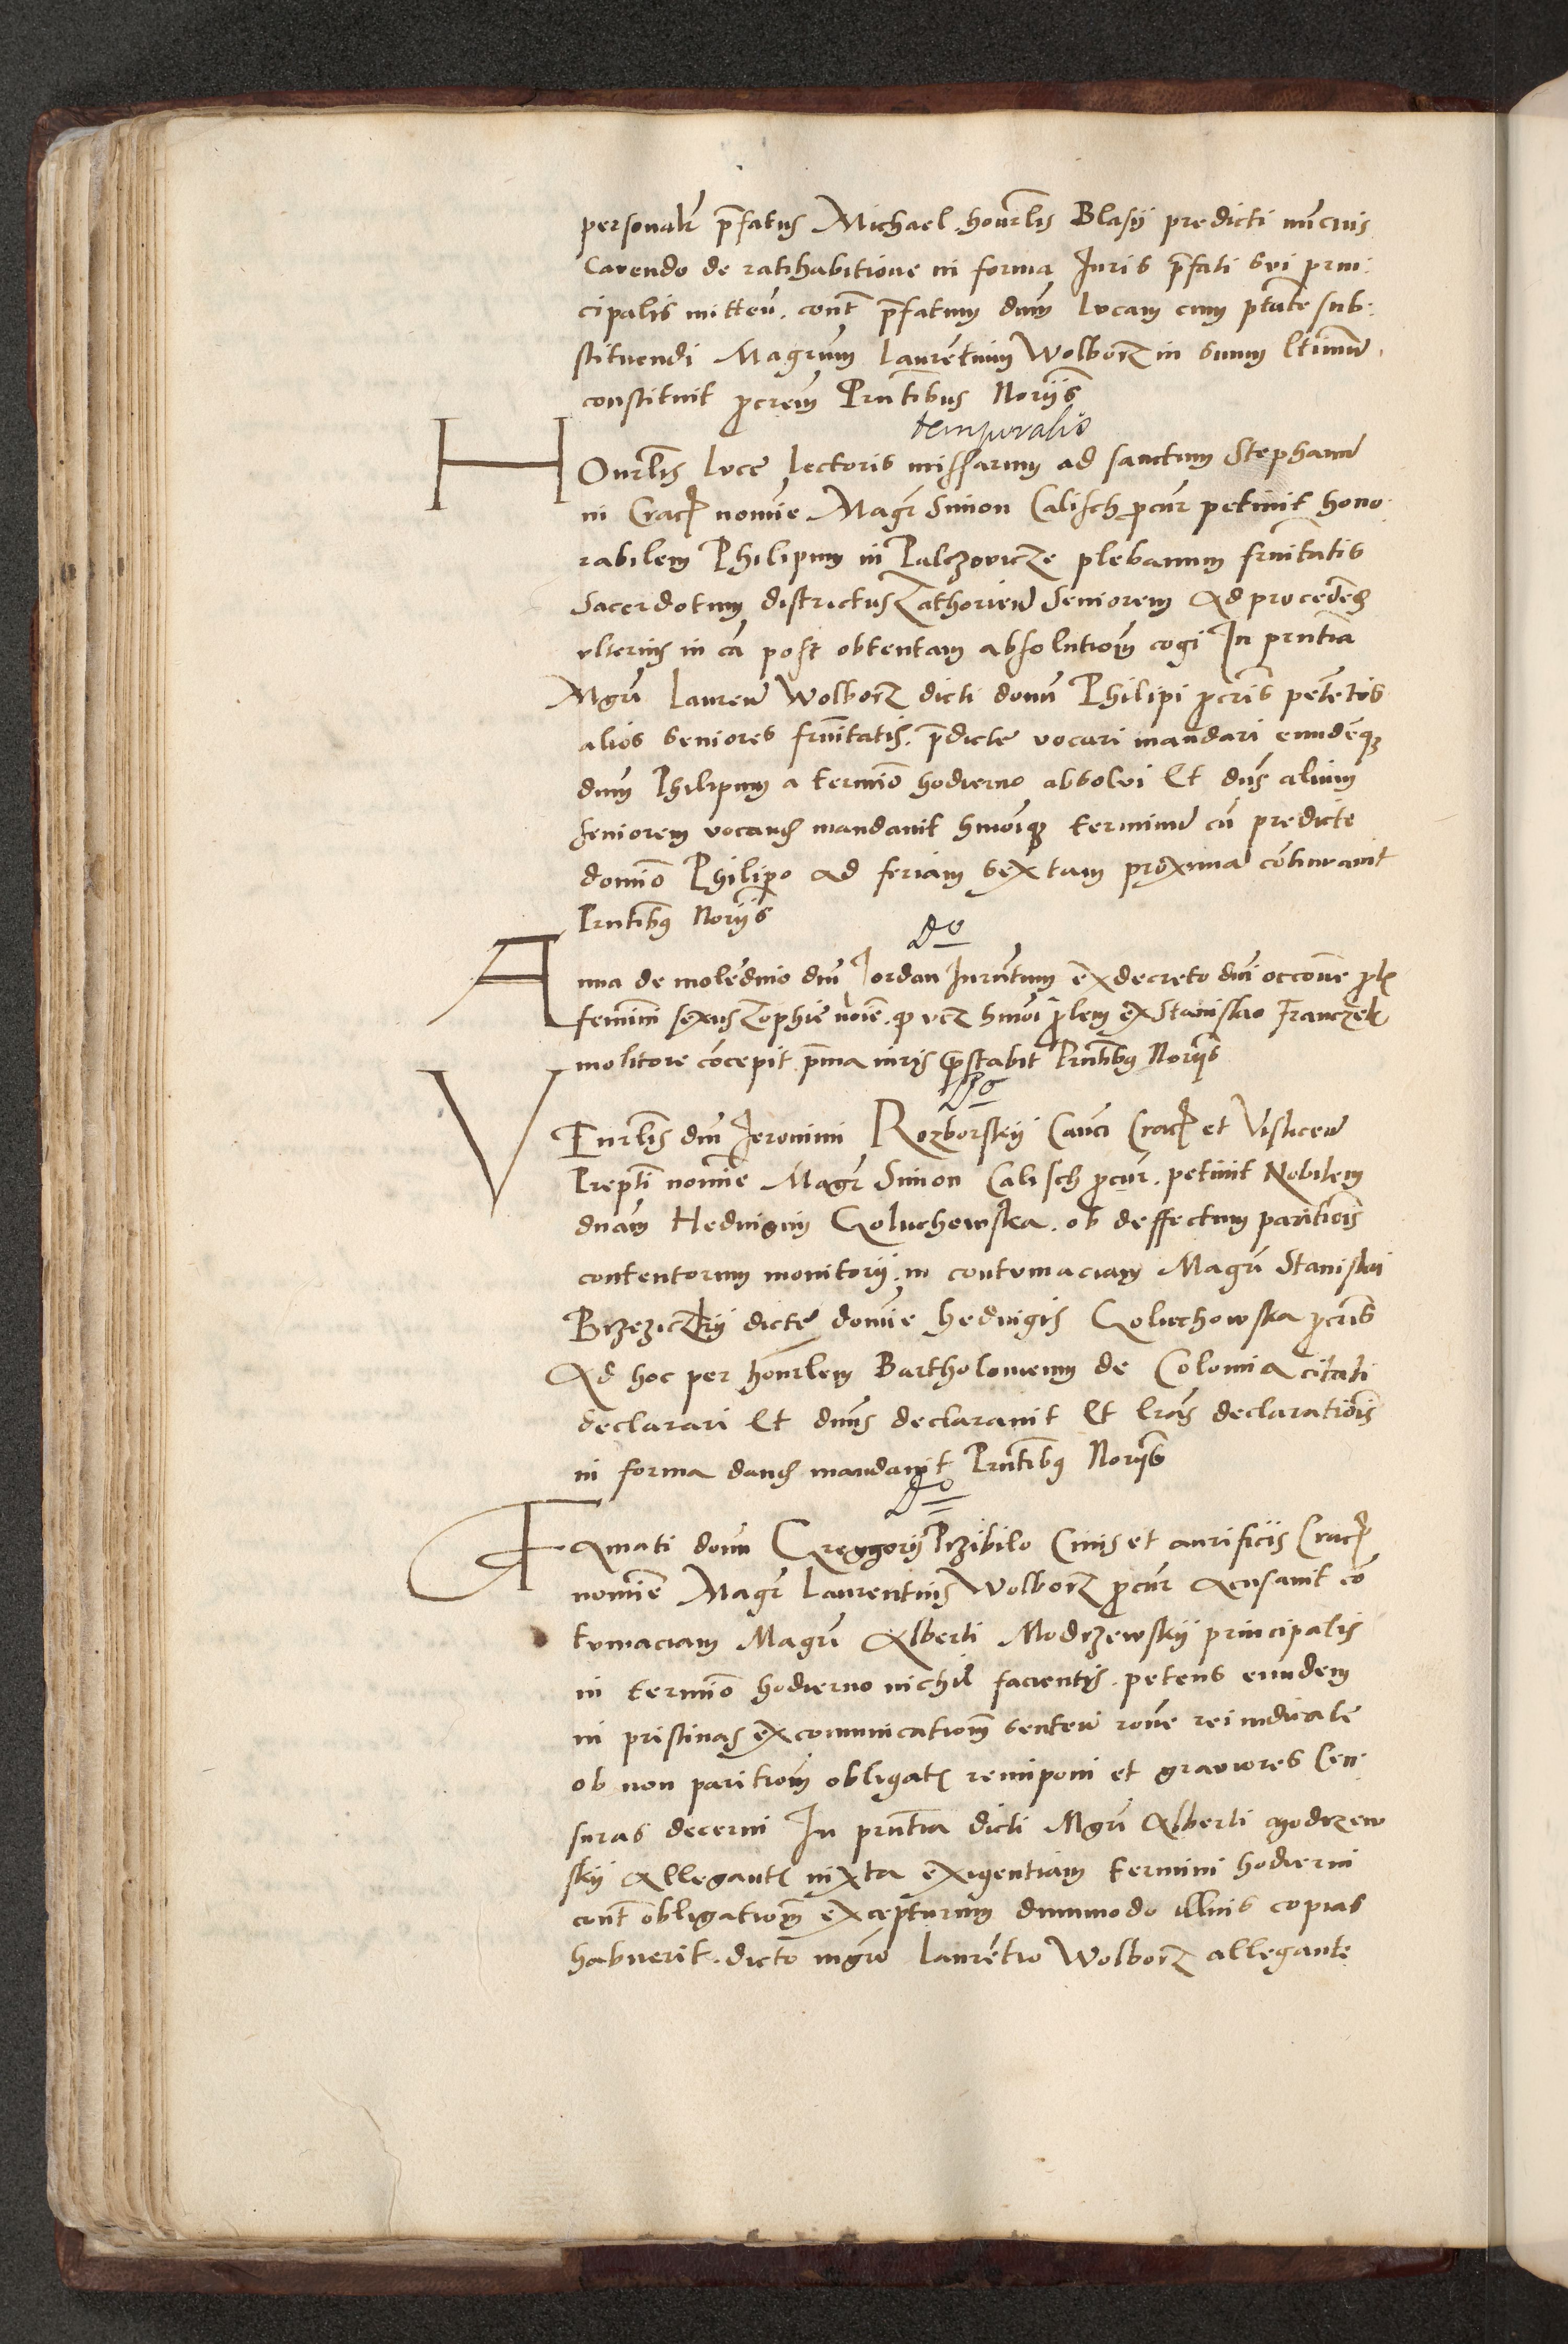 personalr p̄fatus Michael honrlis Blasÿ predicti nūctius
Cavendo de ratihabitione in forma Juris p̄fati sui prin:
cipalis mitteñ. cont̄ p̄fatum dnm̄ lucam cum ptāte sub:
stituendi Magrum Laurētium Wolborz in suum ltimum
constituit p̄crem̄ Prn̄tibus Norÿs
temporalis
HOnrlis luce lectoris missarum ad sanctum Stephanū
in Crac nomīe Magr̄ Simon Calisch p̄cur̄ petiuit hono:
rabilem Philipum in Palczovicze plebanum frn̄itatis
Sacerdotum districtus Zathorień Seniorem Ad procedēd
vlterius in cā post obtentam absolutiom̄ cogi In prn̄tia
Mgri̅ Laureń Wolborz dicti domī Philipi p̄cris petētis
alios seniores frn̄itatis p̄dicte vocari mandari eundēq
dnm̄ Philipum a termīo hodierno absolvi Et dn̄s alium
seniorem vocand mandauit hmōiq terminū cū predicte
domīo Philipo ad feriam sextam proximā cōtinuauit
Prn̄tibꝫ Norÿs
Do
Anna de molēdino dnī Jordan Jurn̄tum ex decreto dnī occōne plis
feminī sexus Zophie noīe q vcz hmōi plem ex Stanislao Franczek
molitore cōcepit p̄ma iuris prestabit Prn̄tibꝫ Norÿs
Do
VEnrlis dnī Jeronimi Rozborskÿ Canci Crac et Visliceń
Prepti̅ nomīe Magr̄ Simon Calisch p̄cur̄. petiuit Nobilem
dnam Heduigim Goluchowska ob deffectum paritiois̄
contentorum monitorÿ in contumaciam Magri̅ Stanislai
Brzeziczkÿ dicte domīe heduigis Goluchowska p̄cris
Ad hoc per honrlem Bartholomeum de Colomia citati
declarari Et dnus declarauit Et lrās declaratiois̄
in forma dand mandauit Prn̄tibꝫ Norÿs
Do
FAmati domī Greggorÿ Przibilo Ciuis et aurificis Crac
nomīe Magr̄ Laurentius Wolborz p̄cur̄ Acusauit cō
tumaciam Magri̅ Alberti Modrzewskÿ principalis
in termīo hodierno nichil facientis. petens eundem
in pristinas excomunicatiom̄ senteń rone rei iudicate
ob non paritiom̄ obligatis reimponi et graviores Cen:
suras decerni In prn̄tia dicti Mgri̅ Alberti Modrzew
skÿ Allegantis iuxta exigentiam termini hodierni
cont̄ obligatiom̄ excepturum dummodo illius copias
habuerit. dicto mgrō Laurētio Wolborz allegante